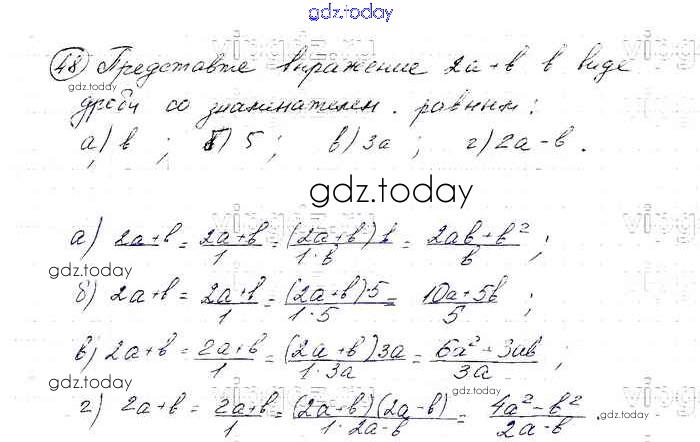 gdz.today
48 Представте выражение 2a+b в виде
gdz.today
дроби со знаминателем . равным:
а) b ; б) 5 ; в) 3a ; г) 2a-b .
gdz.today
а) 2a+b = (2a+b)/1 = ((2a+b)b)/(1·b) = (2ab+b²)/b ;
gdz.today
б) 2a+b = (2a+b)/1 = ((2a+b)·5)/(1·5) = (10a+5b)/5 ;
в) 2a+b = (2a+b)/1 = ((2a+b)3a)/(1·3a) = (6a²+3ab)/3a ;
gdz.today
г) 2a+b = (2a+b)/1 = ((2a+b)(2a-b))/(1·2a-b) = (4a²-b²)/(2a-b) .
gdz.today